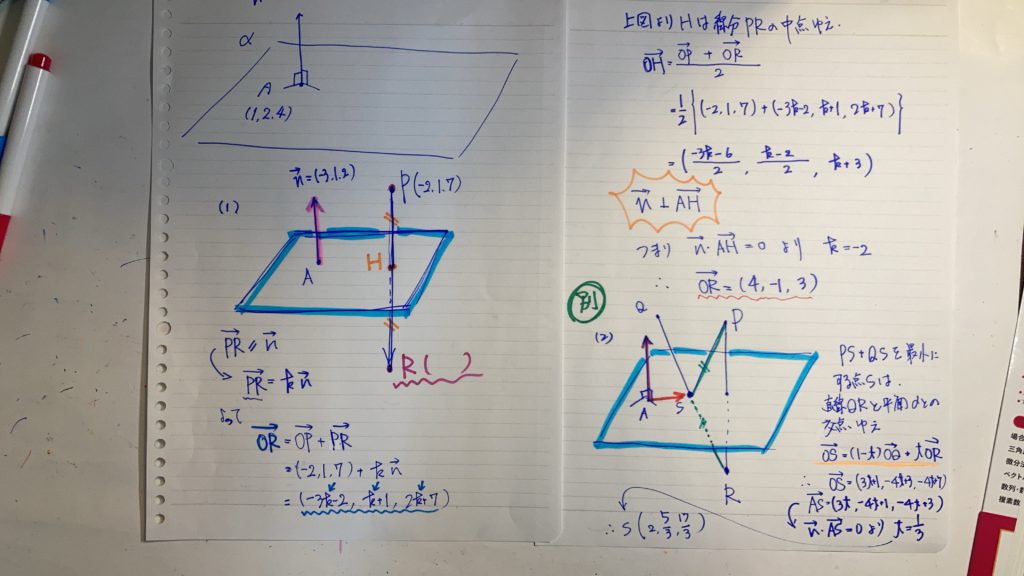 α
A
(1, 2, 4)
(1)
n→=(-3,1,2)
P(-2,1,7)
A
H
R(    )
PR→ // n→
PR→ = kn→
よって
OR→ = OP→ + PR→
= (-2, 1, 7) + kn→
= (-3k-2, k+1, 2k+7)
上図よりHは線分PRの中点ゆえ.
OH→ = (OP→ + OR→)/2
= 1/2 {(-2, 1, 7) + (-3k-2, k+1, 2k+7)}
= ((-3k-6)/2, (k-2)/2, k+3)
n→ ⊥ AH→
つまり n→・AH→ = 0 より k = -2
∴ OR→ = (4, -1, 3)
別
(2)
Q
P
A
S
R
PS+QSを最小に
する点Sは.
直線QRと平面αとの
交点ゆえ
OS→=(1-t)OQ→+tOR→
∴ OS→=(3t+1, -4t+3, -4t+7)
AS→=(3t, -4t+1, -4t+3)
n→・AS→=0 より t=1/3
∴ S (2, 5/3, 17/3)
場合
三角
微分法
ベクト
数列・
複素数